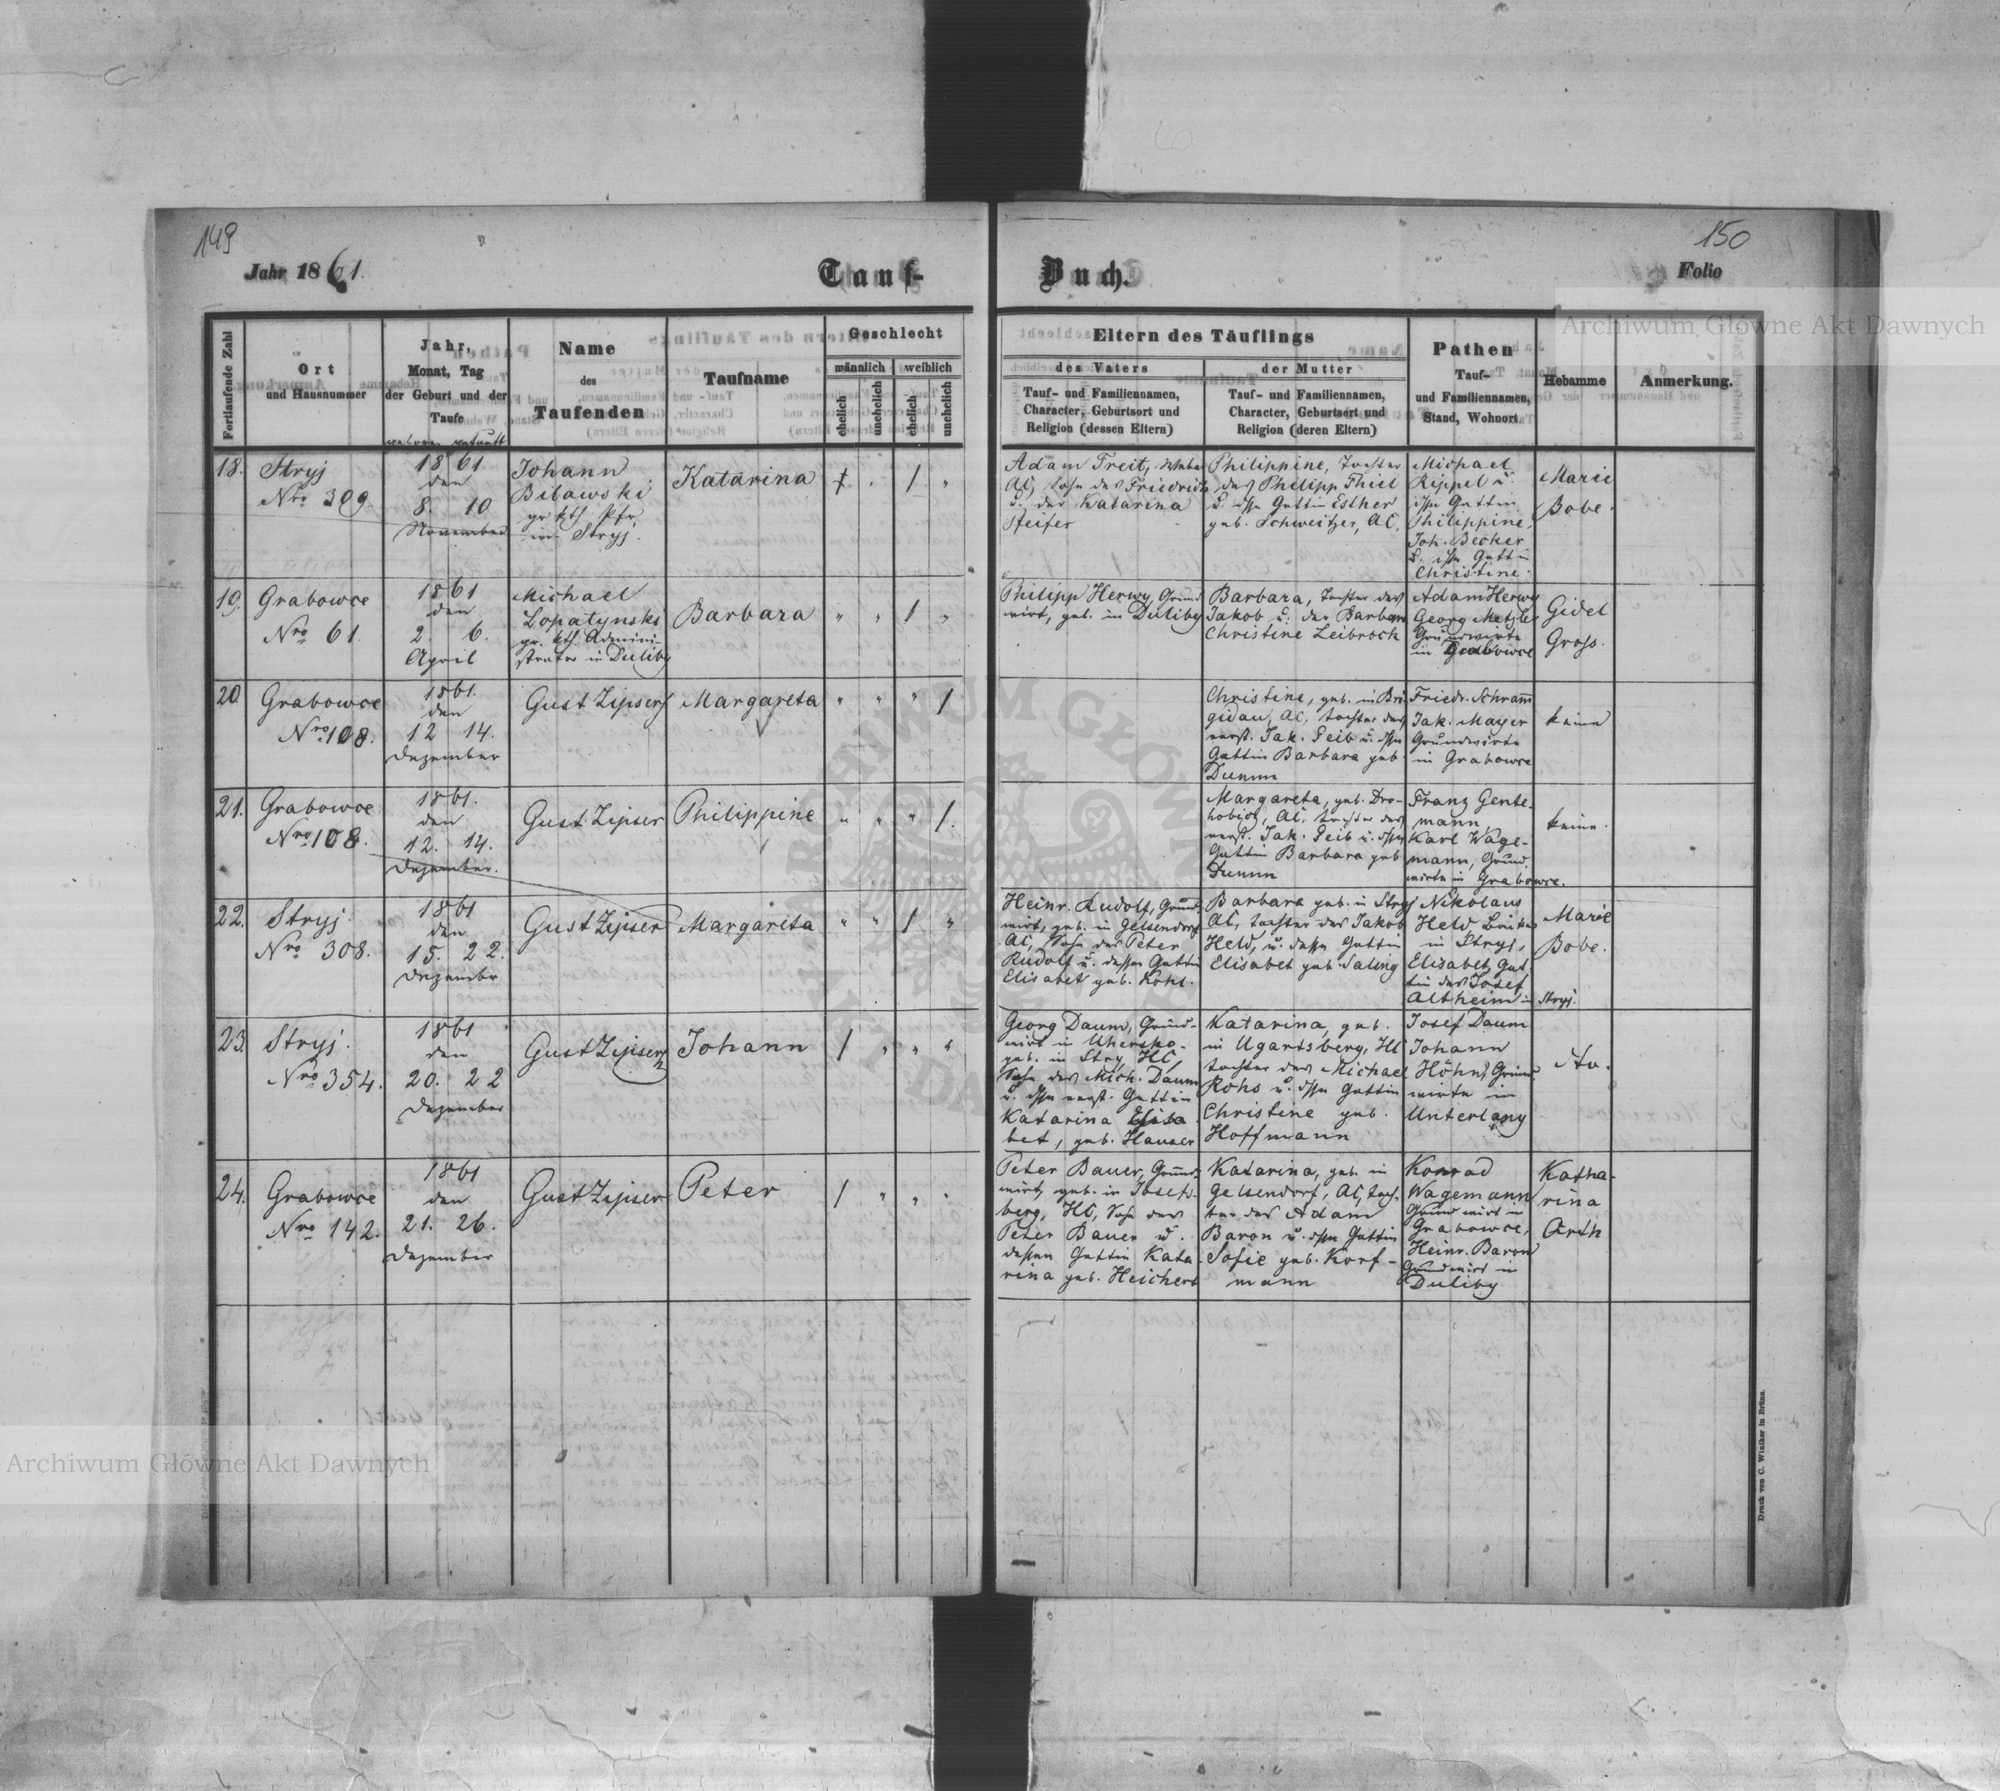 149
150
Jahr 1861.
Tauf-
Buch.
Folio
Fortlaufende Zahl
Ort
und Hausnummer
Jahr,
Monat, Tag
der Geburt und der
Taufe
geboren getauft
Name
des
Taufenden
Taufname
Geschlecht
männlich
weiblich
ehelich
unehelich
ehelich
unehelich
Eltern des Täuflings
des Vaters
Tauf- und Familiennamen,
Character, Geburtsort und
Religion (dessen Eltern)
der Mutter
Tauf- und Familiennamen,
Character, Geburtsort und
Religion (deren Eltern)
Pathen
Tauf-
und Familiennamen,
Stand, Wohnort
Hebamme
Anmerkung.
18.
Stryj
Nro 309.
1861
den
8. 10
November
Johann
Bilawski
gr. kth. Pfr.
in Stryj.
Katarina
Adam Freit, Weber
AC, Sohn des Friedrich
u. der Katarina
Pfeifer
Philippine, Tochter
des Philipp Thiel
u. dssn Gattin Esther
geb. Schweitzer, AC.
Michael
Rippel u.
issn Gattin
Philippine,
Joh. Becker
u. issn Gattin
Christine.
Marie
Bobe.
19.
Grabowce
Nro 61.
1861
den
2. 6.
April
Michael
Lopatynski
gr. kth. Admini-
strator in Duliby
Barbara
Philipp Herwy, Grund
wirt, geb. in Duliby
Barbara, Tochter des
Jakob u. der Barbara
Christine Leibrock
Adam Herwy
Georg Metzler
Grundwirte
in Grabowce
Gidel
Gross.
20.
Grabowce
Nro 108.
1861.
den
12 14.
Dezember
Gust Zipser
Margareta
Christine, geb. in Bri
gidau, AC, Tochter des
verst. Jak. Feib u. dssn
Gattin Barbara geb.
Dumm
Friedr. Schramm
Jak. Mayer
Grundwirte
in Grabowce
keine
21.
Grabowce
Nro 108.
1861.
den
12. 14.
Dezember.
Gust Zipser
Philippine
Margareta, geb. Dro-
hobicz, AC, Tochter des
verst. Jak. Feib u. dssn
Gattin Barbara geb
Dumm
Franz Gente-
mann,
Karl Wage-
mann, Grund
wirte in Grabowce.
keine.
22.
Stryj.
Nro 308.
1861
den
15. 22.
Dezember
Gust Zipser
Margareta
Heinr. Rudolf, Grund
wirt, geb. in Gelsendorf
AC, Sohn des Peter
Rudolf u. dessen Gattin
Elisabet geb. Kohl.
Barbara geb. in Stryj
AC, Tochter des Jakob
Held, u. dessen Gattin
Elisabet geb. Saling
Nikolaus
Held
in Stryj,
Elisabet, Gat
tin des Josef
Altheim in Stryj.
Marie
Bobe.
23.
Stryj.
Nro 354.
1861
den
20. 22
Dezember
Gust Zipser
Johann
Georg Daum, Grund-
wirt in Uhersko.
geb. in Stry, HC,
Sohn des Mich. Daum
u. dssn verst. Gattin
Katarina Elisa
bet, geb. Hanaer
Katarina, geb.
in Ugartsberg, HC
Tochter des Michael
Rohs u. dssn Gattin
Christine geb.
Hoffmann
Josef Daum
Johann
Höhn, Grund
wirte in
Unterlany
24.
Grabowce
Nro 142.
1861
den
21. 26.
Dezember
Gust Zipser
Peter
Peter Bauer, Grund
wirt, geb. in Josefs-
berg, HC, Sohn des
Peter Bauer u.
dessen Gattin Kata-
rina geb. Heichert
Katarina, geb. in
Gelsendorf, AC, Toch-
ter des Adam
Baron u. dssn Gattin
Sofie geb. Korf-
mann
Konrad
Wagemann
Grundwirt in
Grabowce,
Heinr. Baron
Grundwirt in
Duliby
Katha-
rina
Arth
Druck von C. Winiker in Brünn.
Archiwum Główne Akt Dawnych
Archiwum Główne Akt Dawnych
ARCHIWUM GŁÓWNE AKT DAWNYCH